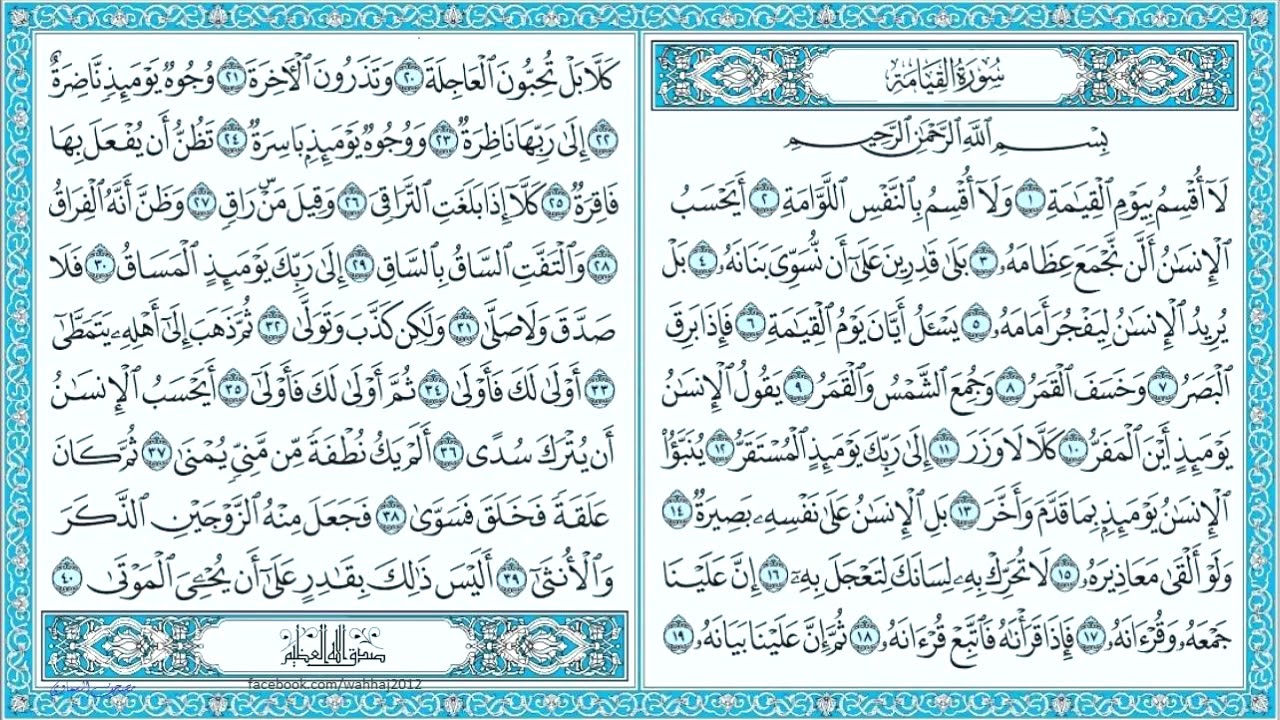 سُورَةُ القِيَامَةِ
بِسْمِ اللَّهِ الرَّحْمَٰنِ الرَّحِيمِ
لَآ أُقْسِمُ بِيَوْمِ ٱلْقِيَٰمَةِ ١ وَلَآ أُقْسِمُ بِٱلنَّفْسِ ٱللَّوَّامَةِ ٢ أَيَحْسَبُ
ٱلْإِنسَٰنُ أَلَّن نَّجْمَعَ عِظَامَهُۥ ٣ بَلَىٰ قَٰدِرِينَ عَلَىٰٓ أَن نُّسَوِّىَ بَنَانَهُۥ ٤ بَلْ
يُرِيدُ ٱلْإِنسَٰنُ لِيَفْجُرَ أَمَامَهُۥ ٥ يَسْـَٔلُ أَيَّانَ يَوْمُ ٱلْقِيَٰمَةِ ٦ فَإِذَا بَرِقَ
ٱلْبَصَرُ ٧ وَخَسَفَ ٱلْقَمَرُ ٨ وَجُمِعَ ٱلشَّمْسُ وَٱلْقَمَرُ ٩ يَقُولُ ٱلْإِنسَٰنُ
يَوْمَئِذٍ أَيْنَ ٱلْمَفَرُّ ١٠ كَلَّا لَا وَزَرَ ١١ إِلَىٰ رَبِّكَ يَوْمَئِذٍ ٱلْمُسْتَقَرُّ ١٢ يُنَبَّؤُا۟
ٱلْإِنسَٰنُ يَوْمَئِذٍۭ بِمَا قَدَّمَ وَأَخَّرَ ١٣ بَلِ ٱلْإِنسَٰنُ عَلَىٰ نَفْسِهِۦ بَصِيرَةٌ ١٤
وَلَوْ أَلْقَىٰ مَعَاذِيرَهُۥ ١٥ لَا تُحَرِّكْ بِهِۦ لِسَانَكَ لِتَعْجَلَ بِهِۦٓ ١٦ إِنَّ عَلَيْنَا
جَمْعَهُۥ وَقُرْءَانَهُۥ ١٧ فَإِذَا قَرَأْنَٰهُ فَٱتَّبِعْ قُرْءَانَهُۥ ١٨ ثُمَّ إِنَّ عَلَيْنَا بَيَانَهُۥ ١٩
كَلَّا بَلْ تُحِبُّونَ ٱلْعَاجِلَةَ ٢٠ وَتَذَرُونَ ٱلْءَاخِرَةَ ٢١ وُجُوهٌ يَوْمَئِذٍ نَّاضِرَةٌ
٢٢ إِلَىٰ رَبِّهَا نَاظِرَةٌ ٢٣ وَوُجُوهٌ يَوْمَئِذٍۭ بَاسِرَةٌ ٢٤ تَظُنُّ أَن يُفْعَلَ بِهَا
فَاقِرَةٌ ٢٥ كَلَّآ إِذَا بَلَغَتِ ٱلتَّرَاقِىَ ٢٦ وَقِيلَ مَنْ ۜ رَاقٍ ٢٧ وَظَنَّ أَنَّهُ ٱلْفِرَاقُ
٢٨ وَٱلْتَفَّتِ ٱلسَّاقُ بِٱلسَّاقِ ٢٩ إِلَىٰ رَبِّكَ يَوْمَئِذٍ ٱلْمَسَاقُ ٣٠ فَلَا
صَدَّقَ وَلَا صَلَّىٰ ٣١ وَلَٰكِن كَذَّبَ وَتَوَلَّىٰ ٣٢ ثُمَّ ذَهَبَ إِلَىٰٓ أَهْلِهِۦ يَتَمَطَّىٰٓ
٣٣ أَوْلَىٰ لَكَ فَأَوْلَىٰ ٣٤ ثُمَّ أَوْلَىٰ لَكَ فَأَوْلَىٰٓ ٣٥ أَيَحْسَبُ ٱلْإِنسَٰنُ
أَن يُتْرَكَ سُدًى ٣٦ أَلَمْ يَكُ نُطْفَةً مِّن مَّنِىٍّ يُمْنَىٰ ٣٧ ثُمَّ كَانَ
عَلَقَةً فَخَلَقَ فَسَوَّىٰ ٣٨ فَجَعَلَ مِنْهُ ٱلزَّوْجَيْنِ ٱلذَّكَرَ
وَٱلْأُنثَىٰٓ ٣٩ أَلَيْسَ ذَٰلِكَ بِقَٰدِرٍ عَلَىٰٓ أَن يُحْۦِىَ ٱلْمَوْتَىٰ ٤٠
صدق الله العظيم
facebook.com/wahhaj2012